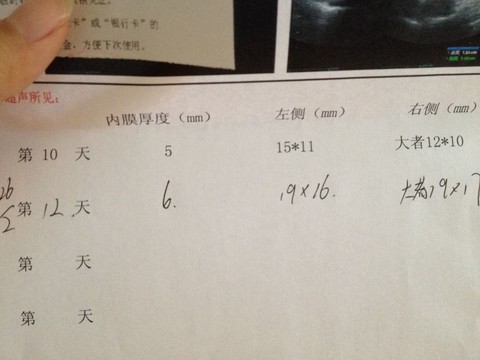 卡”或“银行卡”的
金，方便下次使用。
超声所见：
内膜厚度（mm） 左侧（mm） 右侧（mm）
第 10 天 5 15*11 大者12*10
26
第 12 天 6. 19×16. 大者19×17
第 天
第 天